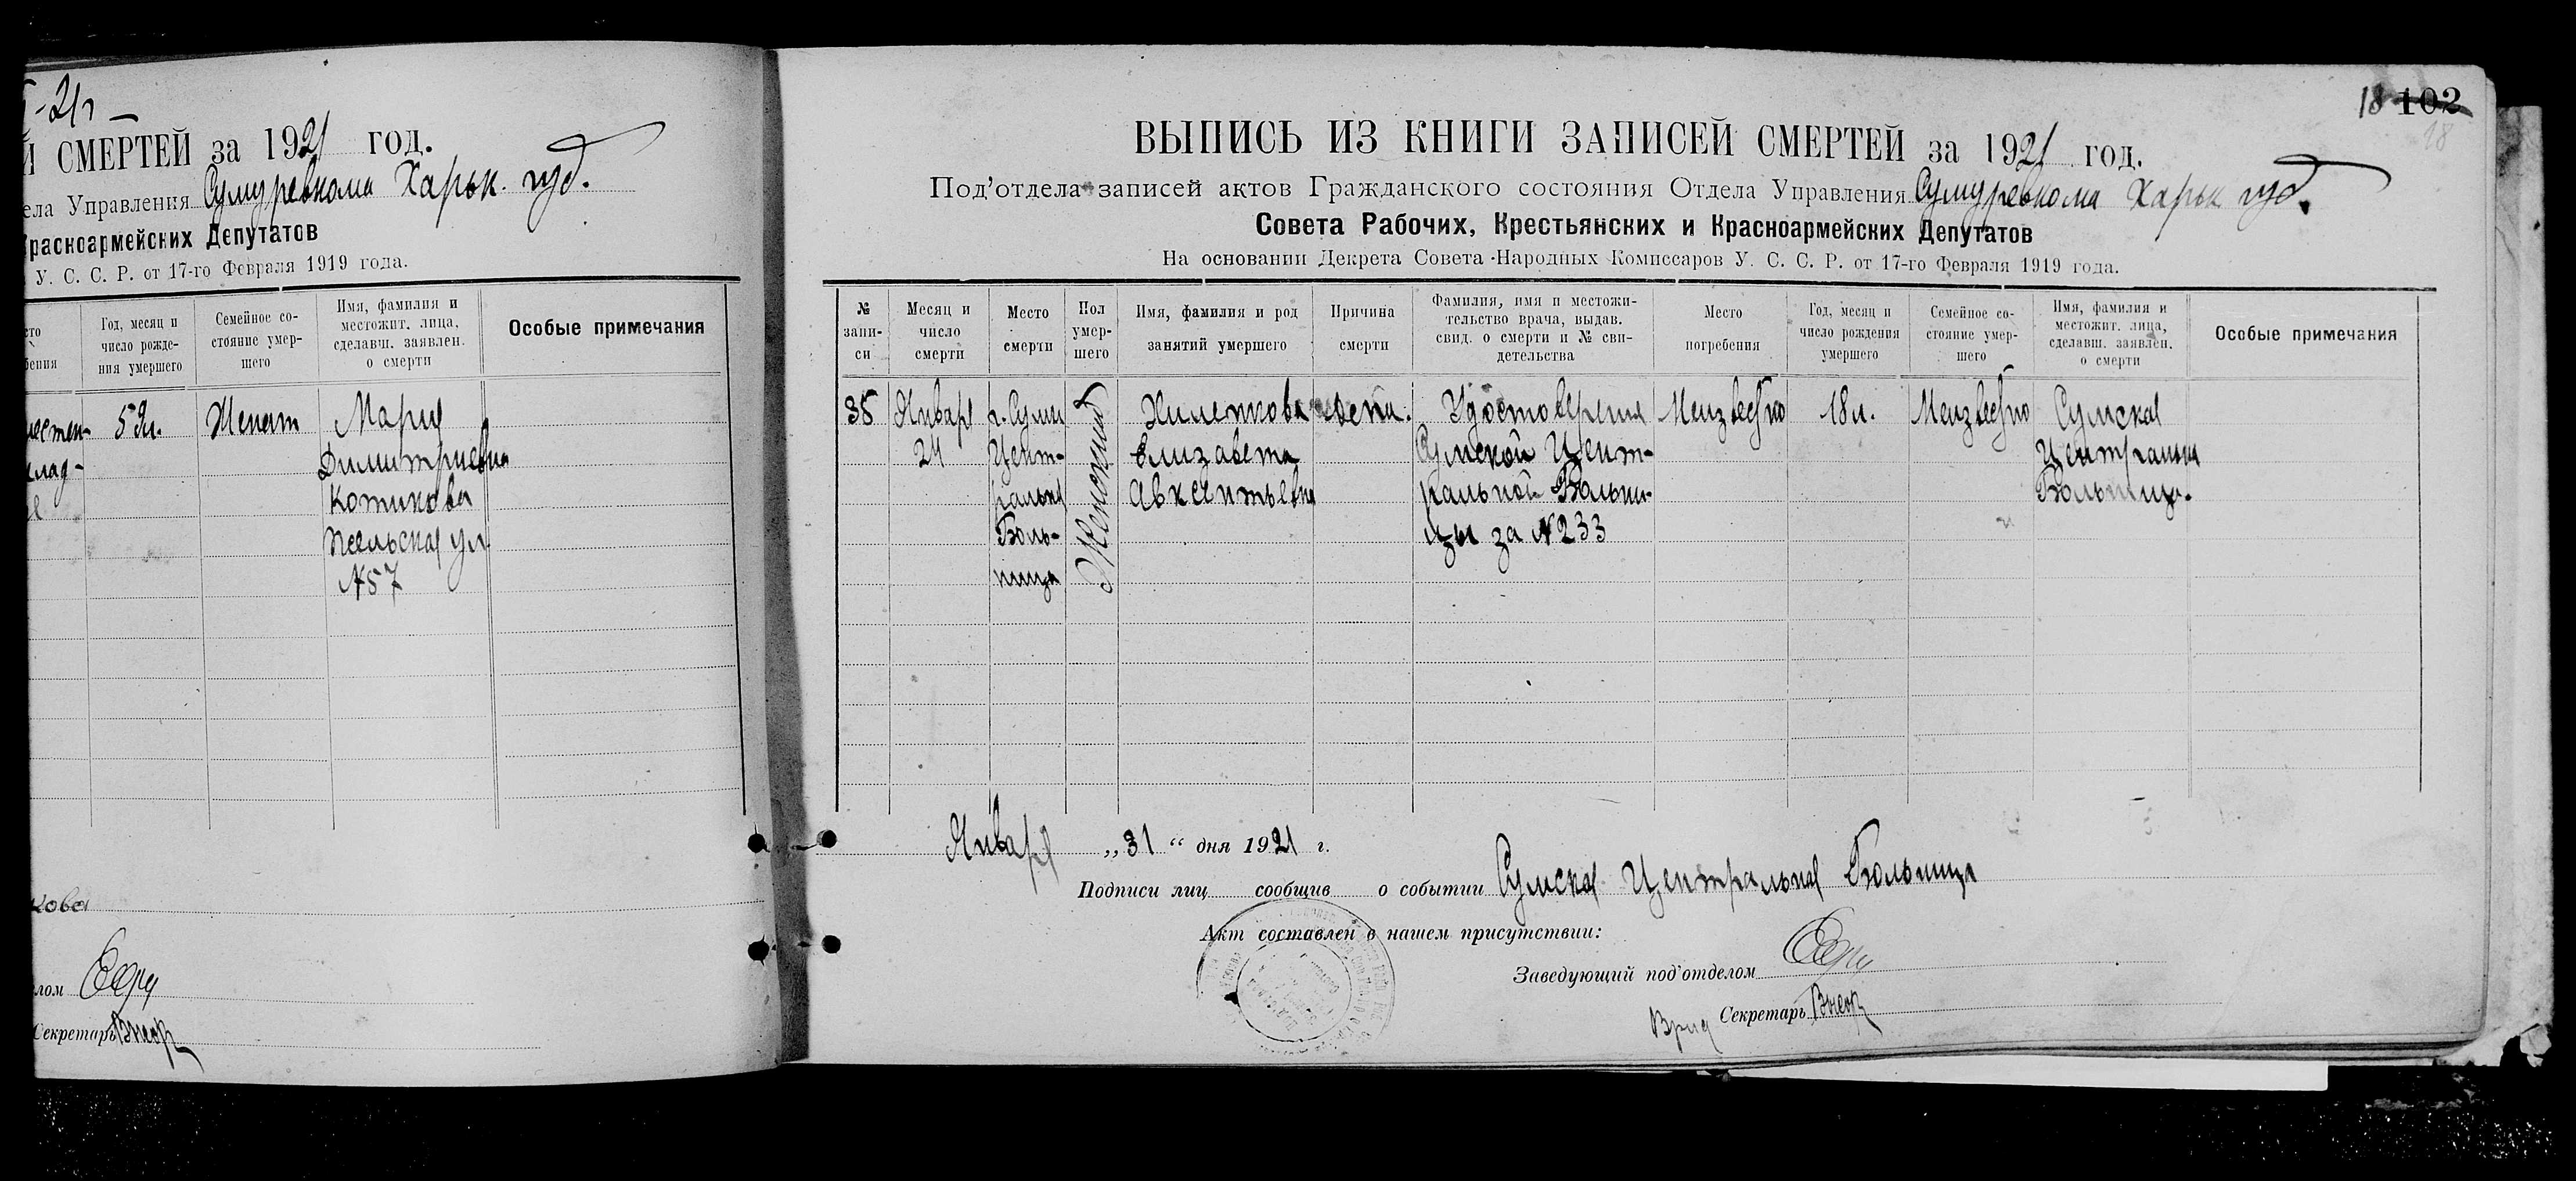 -21г
Й СМЕРТЕЙ за 1921 год.
ела Управления Сумуревкома Харьк. губ.
Красноармейских Депутатов
У. С. С. Р. от 17-го Февраля 1919 года.
Год, месяц и число рожде-ния умершего
Семейное со-стояние умер-шего
Имя, фамилия и местожит. лица, сделавш. заявлен. о смерти
Особые примечания
53л.
Женат
Мария
Димитриевна
Котикова
Псельская ул
№57
кова
лом
Секретарь
18 102
18
ВЫПИСЬ ИЗ КНИГИ ЗАПИСЕЙ СМЕРТЕЙ за 1921 год.
Под'отдела записей актов Гражданского состояния Отдела Управления Сумуревкома Харьк губ.
Совета Рабочих, Крестьянских и Красноармейских Депутатов
На основании Декрета Совета Народных Комиссаров У. С. С. Р. от 17-го Февраля 1919 года.
№ запи-си
Месяц и число смерти
Место смерти
Пол умер-шего
Имя, фамилия и род занятий умершего
Причина смерти
Фамилия, имя и местожи-тельство врача, выдав. свид. о смерти и № сви-детельства
Место погребения
Год, месяц и число рождения умершего
Семейное со-стояние умер-шего
Имя, фамилия и местожит. лица, сделавш. заявлен. о смерти
Особые примечания
35
Января
24
г. Сумы
Цент-
ральная
Боль-
ница
Женский
Елизавета
Авксентьевна
Удостоверения
Сумской Цент-
ральной Больни-
цы за №233
Неизвестно
18л.
Неизвестно
Сумская
Центральная
Больница.
Января „31“ дня 1921 г.
Подписи лиц сообщив о событии Сумская Центральная Больница
Акт составлен в нашем присутствии:
Заведующий под'отделом
Врид Секретарь